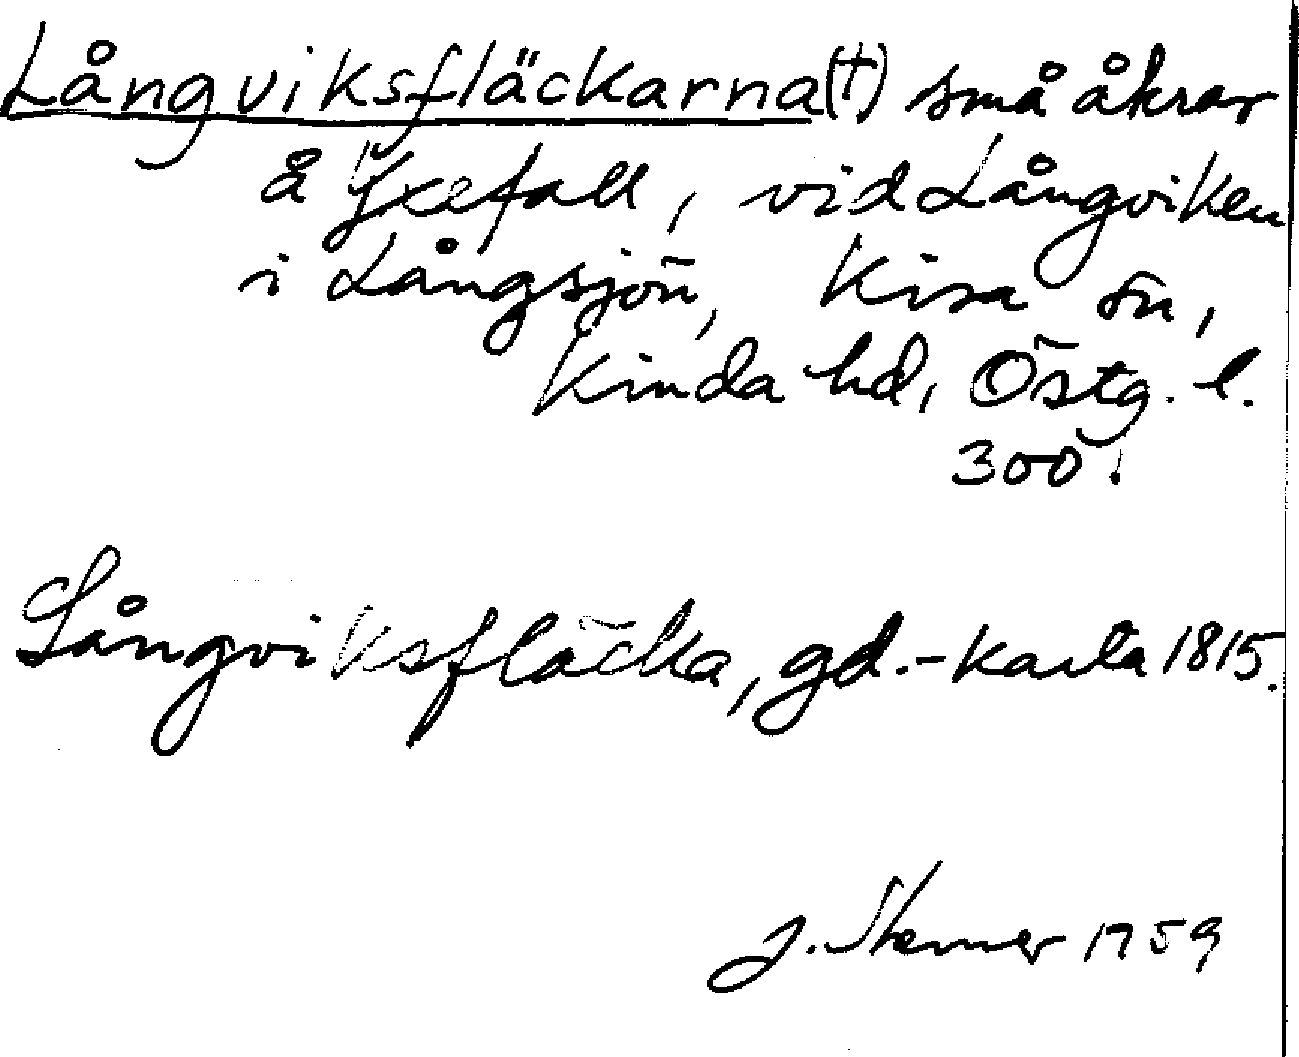 Långviksfläckarna (†) små åkrar
å Yxefall, vid Långviken
i Långsjön, Kisa sn,
Kinda hd, Östg. l.
300.
Långviksfläcka, gd.-karta 1815.
J. Sterner 1959